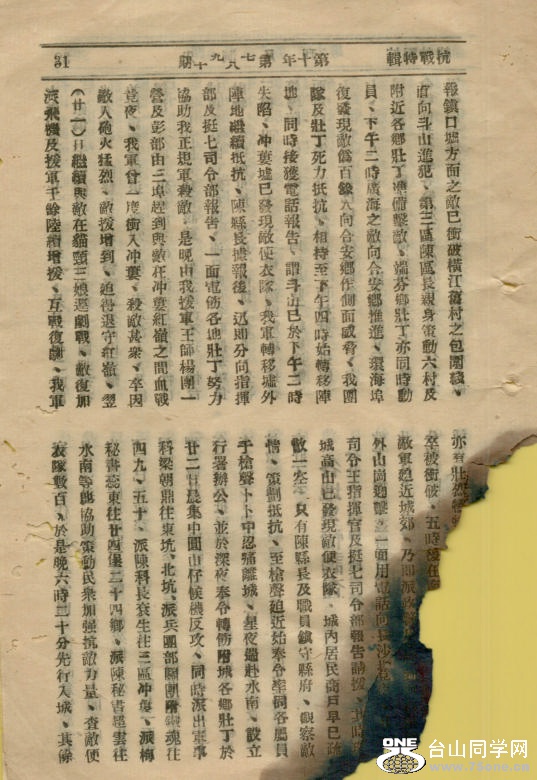 抗戰特輯
第十年第七八九十期
31
報鎮口墟方面之敵已衝破橫江蕭村之包圍綫、
直向斗山進犯、第三區陳區長親身策動六村及
附近各鄉壯丁準備擊敵、端芬鄉壯丁亦同時動
員、下午二時廣海之敵向合安鄉推進、環海埠
復發現敵僞百餘人向合安鄉作側面威脅、我團
隊及壯丁死力抵抗、相持至下午四時始轉移陣
地、同時接獲電話報告、謂斗山已於下午二時
失陷、冲蔞墟已發現敵便衣隊、我軍轉移墟外
陣地繼續抵抗、陳縣長據報後、迅即分向指揮
部及挺七司令部報告、一面電飭各地壯丁努力
協助我正規軍殺敵、是晚由我援軍王師楊團一
營及彭部由三埠趕到與敵在冲蔞紅嶺之間血戰
竟夜、我軍曾一度衝入冲蔞、殺敵甚衆、卒因
敵人砲火猛烈、敵援增到、迫得退守紅嶺、翌
（廿一）日繼續與敵在貓頸三娘逕劇戰、敵復加
派飛機及援軍千餘陸續增援、互戰復劇、我軍
亦有壯烈犧牲
卒被衝破、五時後
敵軍迫近城郊、乃即派
外山崗迎擊、一面用電話向長沙
司令王指揮官及挺七司令部報告請援、
城高山已發現敵便衣隊、城內居民商戶早已疏
散一空、只有陳縣長及職員鎮守縣府、觀察敵
情、策劃抵抗、至槍聲迫近始奉令率同各屬員
于槍聲卜卜中忍痛離城、星夜遄赴水南、設立
行署辦公、並於深夜奉令轉飭附城各鄉壯丁於
廿二日晨集中圓山仔候機反攻、同時派出軍事
科梁朝鼎往東坑、北坑、派兵團部關團附銅魂往
四九、五十、派陳科長袞生往三區冲蔞、派梅
秘書蕊東往廿四堡二十四鄉、派陳秘書超雲往
水南等鄉協助策動民衆加强抗敵力量、查敵便
衣隊數百、於是晚六時二十分先行入城、其餘
ONE
台山同学网
www.1kane.cn